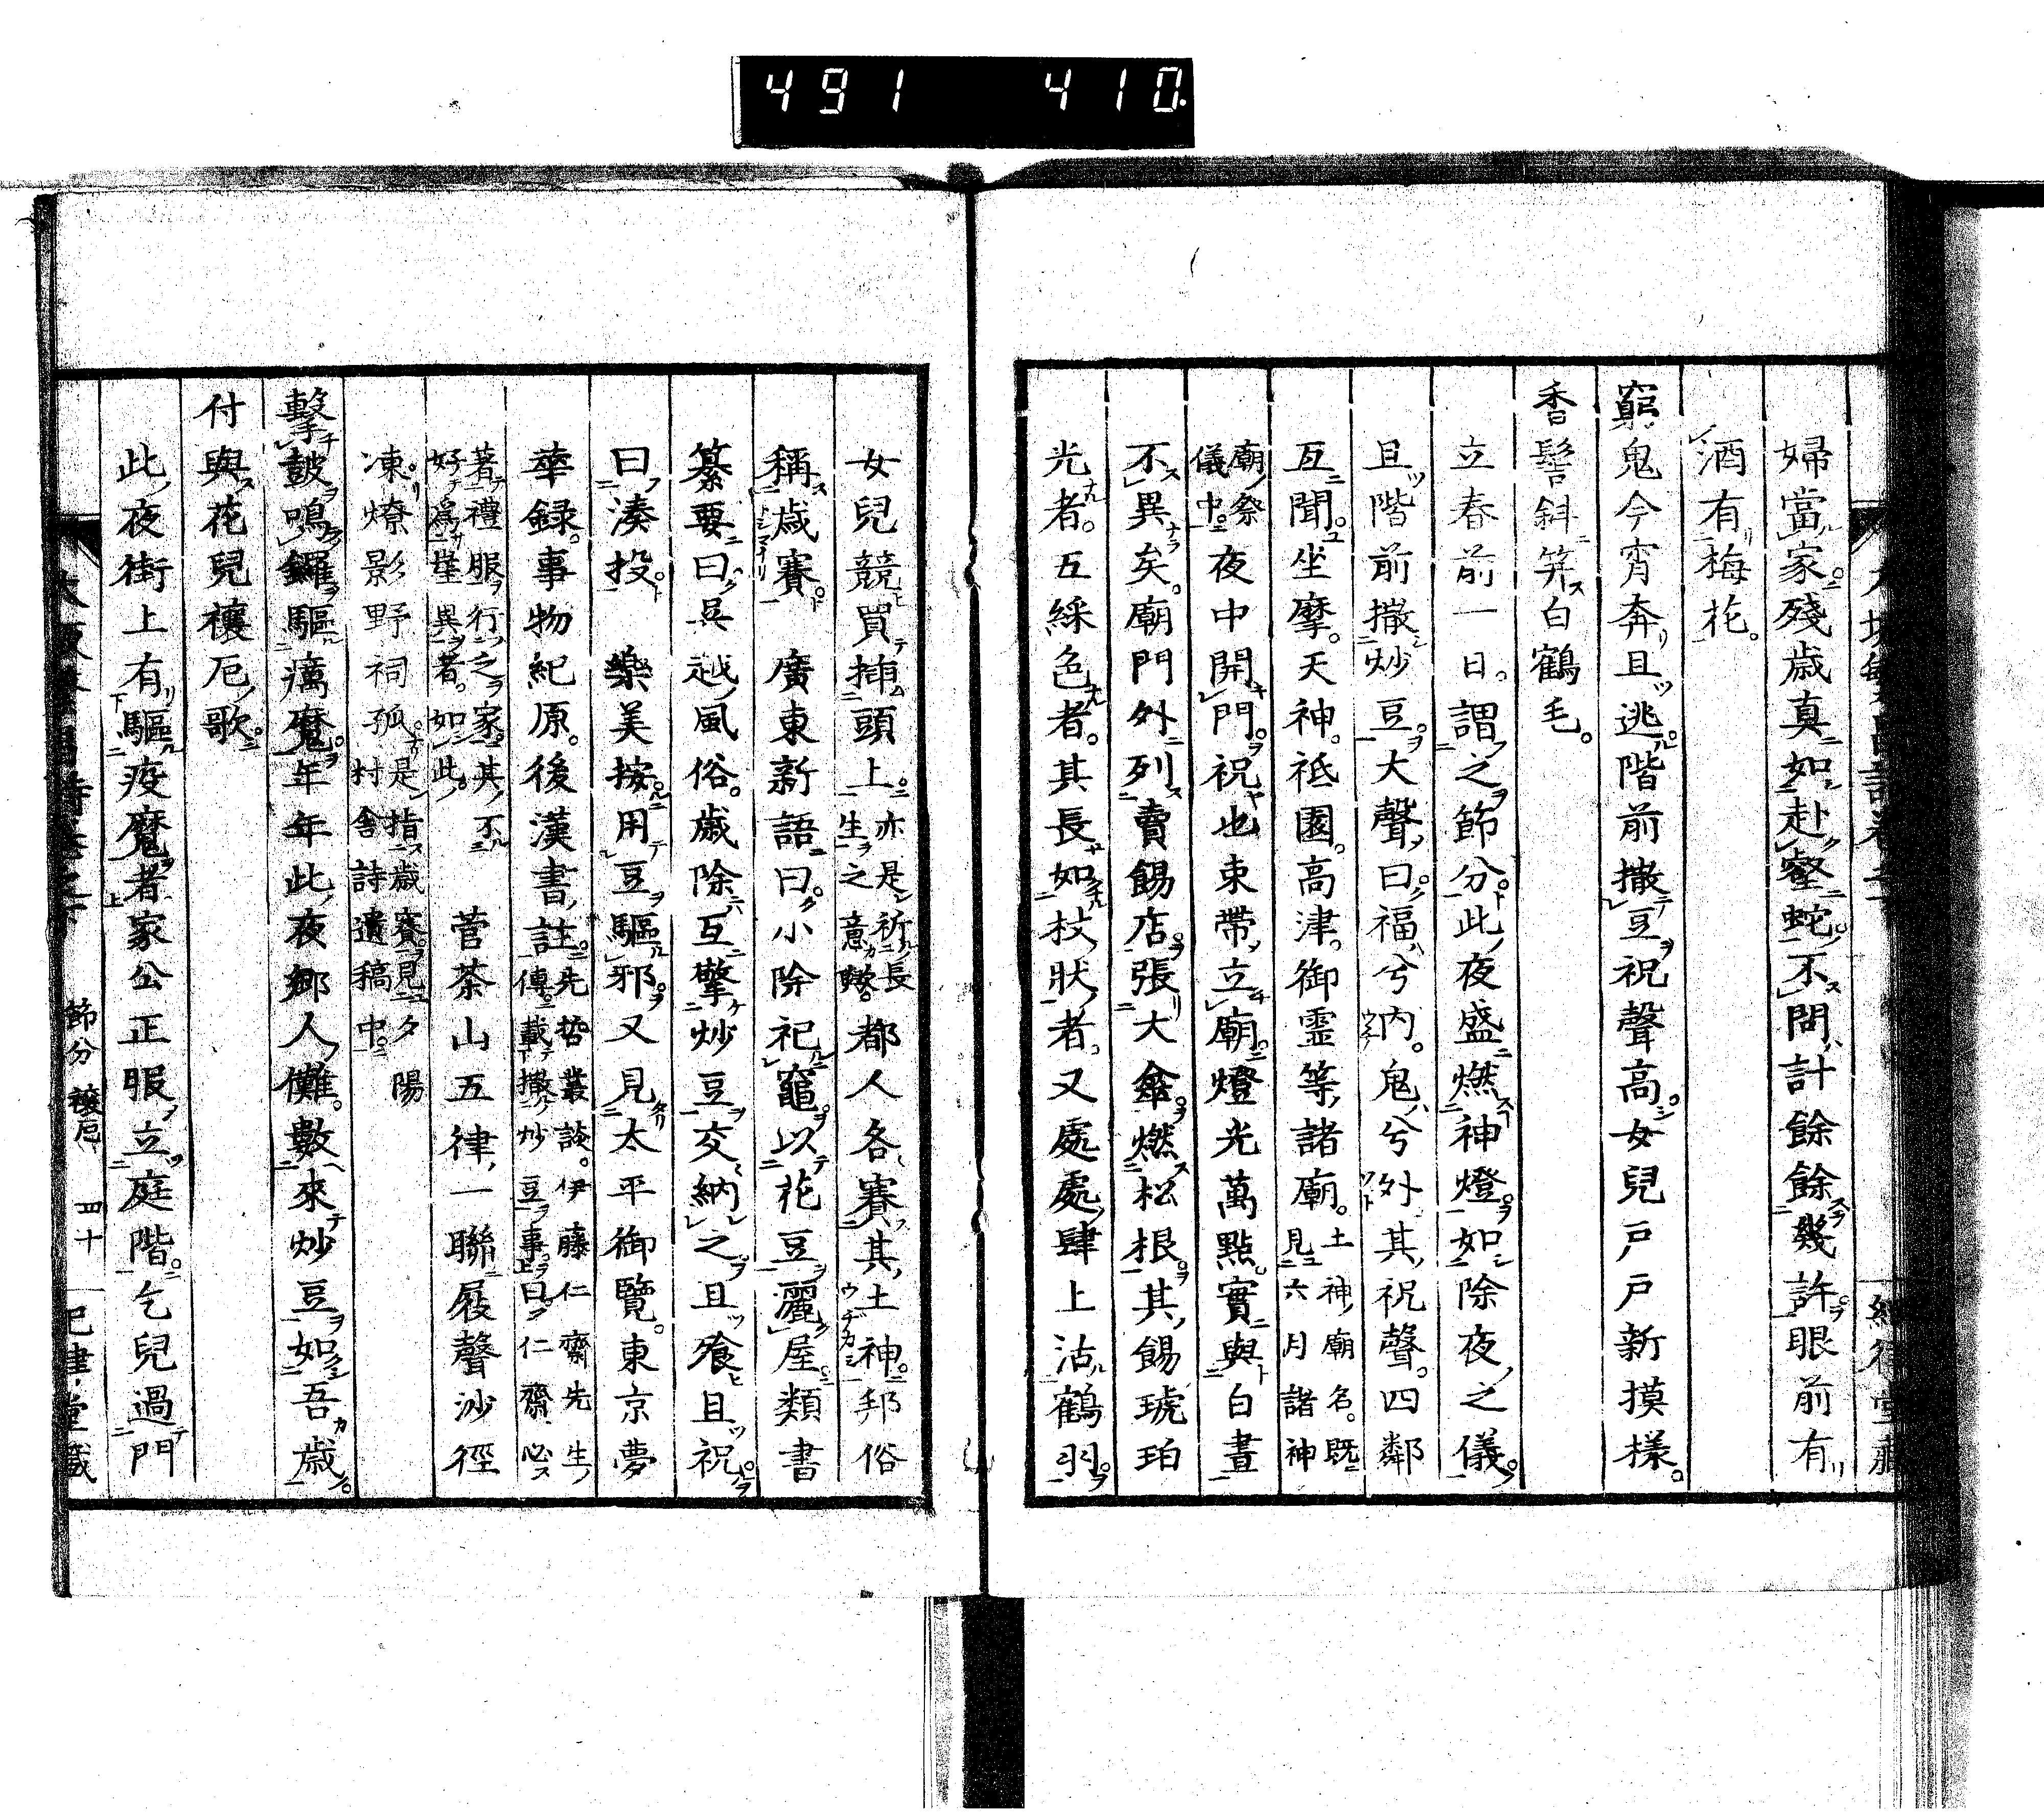 491 410
婦當家殘歳真如赴壑蛇不問計餘餘幾許眼前有
酒有梅花
窮鬼今宵奔且逃階前撒豆祝聲高女兒戸戸新摸樣
香髻斜笄白鶴毛
立春前一日謂之節分此夜盛燃神燈如除夜之儀
且階前撒炒豆大聲曰福兮内鬼兮外其祝聲四鄰
互聞坐摩天神祗園高津御霊等諸廟土神廟名既見六月諸神
廟祭儀中夜中開門祝也束帶立廟燈光萬點實與白晝
不異矣廟門外列賣餳店張大傘燃松根其餳琥珀
光者五綵色者其長如杖狀者又處處肆上沽鶴羽
女兒競買挿頭上亦是祈長生之意歟都人各賽其土神邦俗
稱歳賽廣東新語曰小除祀竈以花豆灑屋類書
纂要曰吳越風俗歳除互擎炒豆交納之且飧且祝
曰湊投樂美按用豆驅邪又見太平御覽東京夢
華録事物紀原後漢書註先哲叢談伊藤仁齋先生傳載撒炒豆事曰仁齋必
著禮服行之家其不好爲崖異者如此菅茶山五律一聯屐聲沙徑
凍燎影野祠孤是指歳賽見夕陽村舎詩遺稿中
擊皷鳴鑼驅癘魔年年此夜郷人儺數來炒豆如吾歳
付與花兒禳厄歌
此夜街上有驅疫魔者家公正服立庭階乞兒過門
節分 禳厄 四十